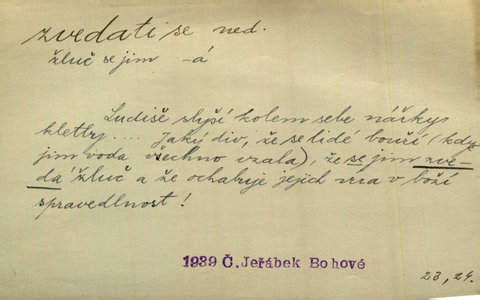 zvedati se ned.
žluč se jim -á
Ludiše slyší kolem sebe nářky,
kletby.... Jaký div, že se lidé bouří (když
jim voda všechno vzala), že se jim zve-
dá žluč a že ochabuje jejich víra v boží
spravedlnost!
1939 Č. Jeřábek Bohové
23, 24.